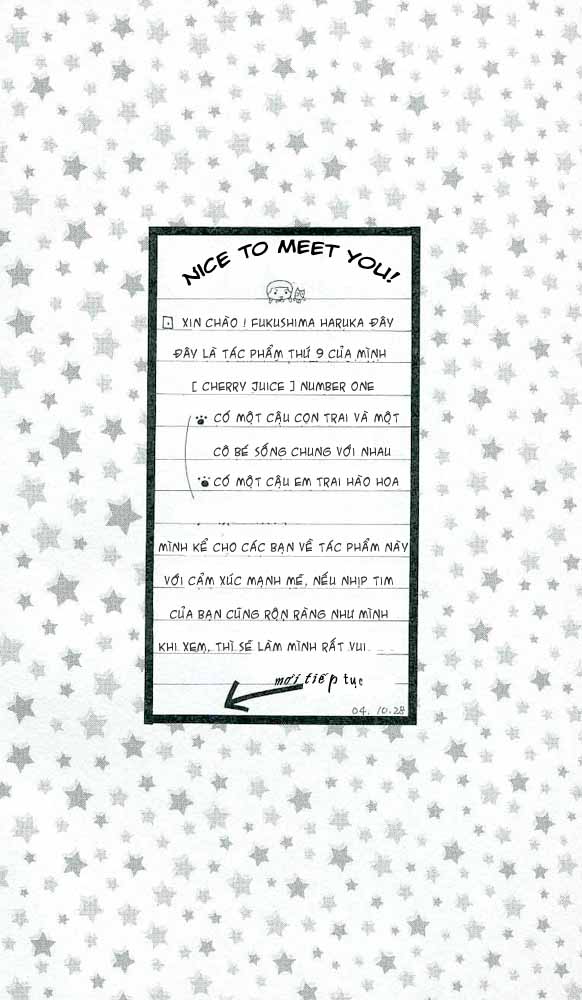 NICE TO MEET YOU!
XIN CHÀO ! FUKUSHIMA HARUKA ĐÂY
ĐÂY LÀ TÁC PHẨM THỨ 9 CỦA MÌNH
[ CHERRY JUICE ] NUMBER ONE
CÓ MỘT CẬU CON TRAI VÀ MỘT
CÔ BÉ SỐNG CHUNG VỚI NHAU
CÓ MỘT CẬU EM TRAI HÀO HOA
MÌNH KỂ CHO CÁC BẠN VỀ TÁC PHẨM NÀY
VỚI CẢM XÚC MẠNH MẼ, NẾU NHỊP TIM
CỦA BẠN CŨNG RỘN RÀNG NHƯ MÌNH
KHI XEM, THÌ SẼ LÀM MÌNH RẤT VUI
mời tiếp tục
04. 10.28